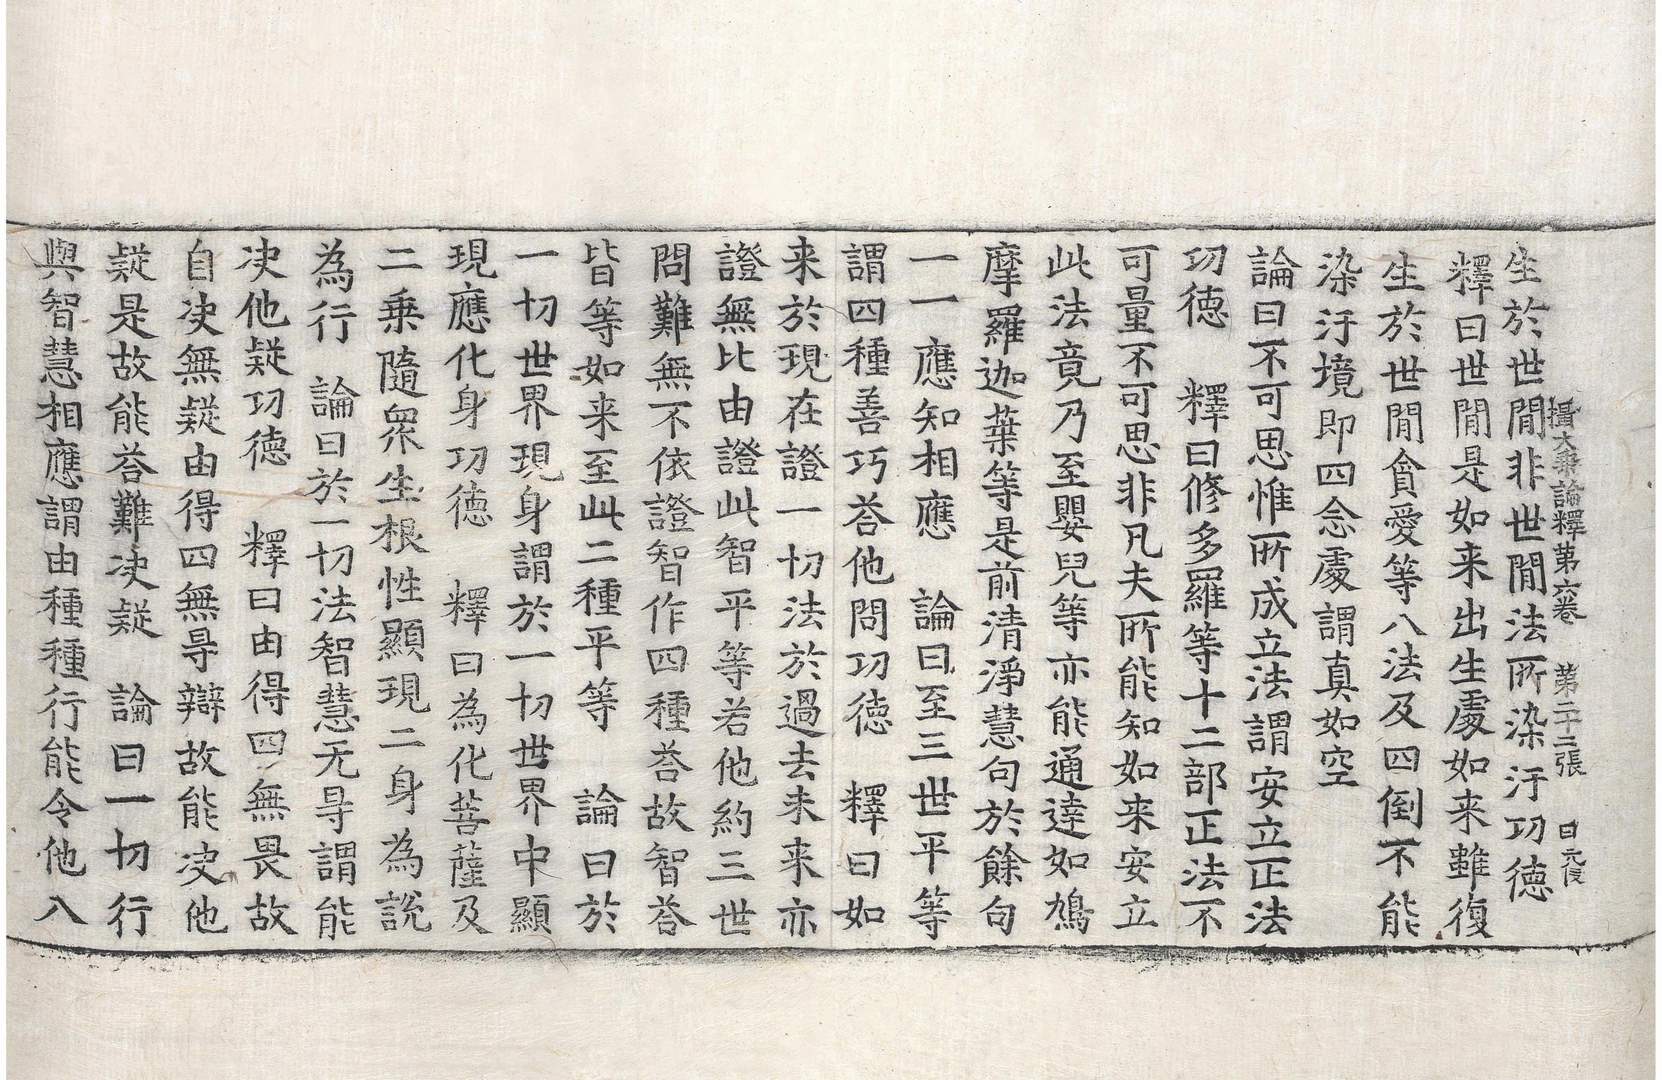 攝大乗論釋第六卷　第二十二張　日　元俊
生於世間非世間法所染汙功德
釋曰世間是如来出生處如来雖復
生於世間貪愛等八法及四倒不能
染汙境即四念處謂真如空
論曰不可思惟所成立法謂安立正法
功德　釋曰修多羅等十二部正法不
可量不可思非凡夫所能知如来安立
此法竟乃至嬰兒等亦能通達如鳩
摩羅迦葉等是前清淨慧句於餘句
一一應知相應　論曰至三世平等
謂四種善巧荅他問功徳　釋曰如
来於現在證一切法於過去未来亦
證無比由證此智平等若他約三世
問難無不依證智作四種荅故智荅
皆等如来至此二種平等　論曰於
一切世界現身謂於一切世界中顯
現應化身功德　釋曰為化菩薩及
二乗隨衆生根性顯現二身為說
為行　論曰於一切法智慧无㝵謂能
决他疑功德　釋曰由得四無畏故
自决無疑由得四無㝵辯故能决他
疑是故能荅難决疑　論曰一切行
與智慧相應謂由種種行能令他八